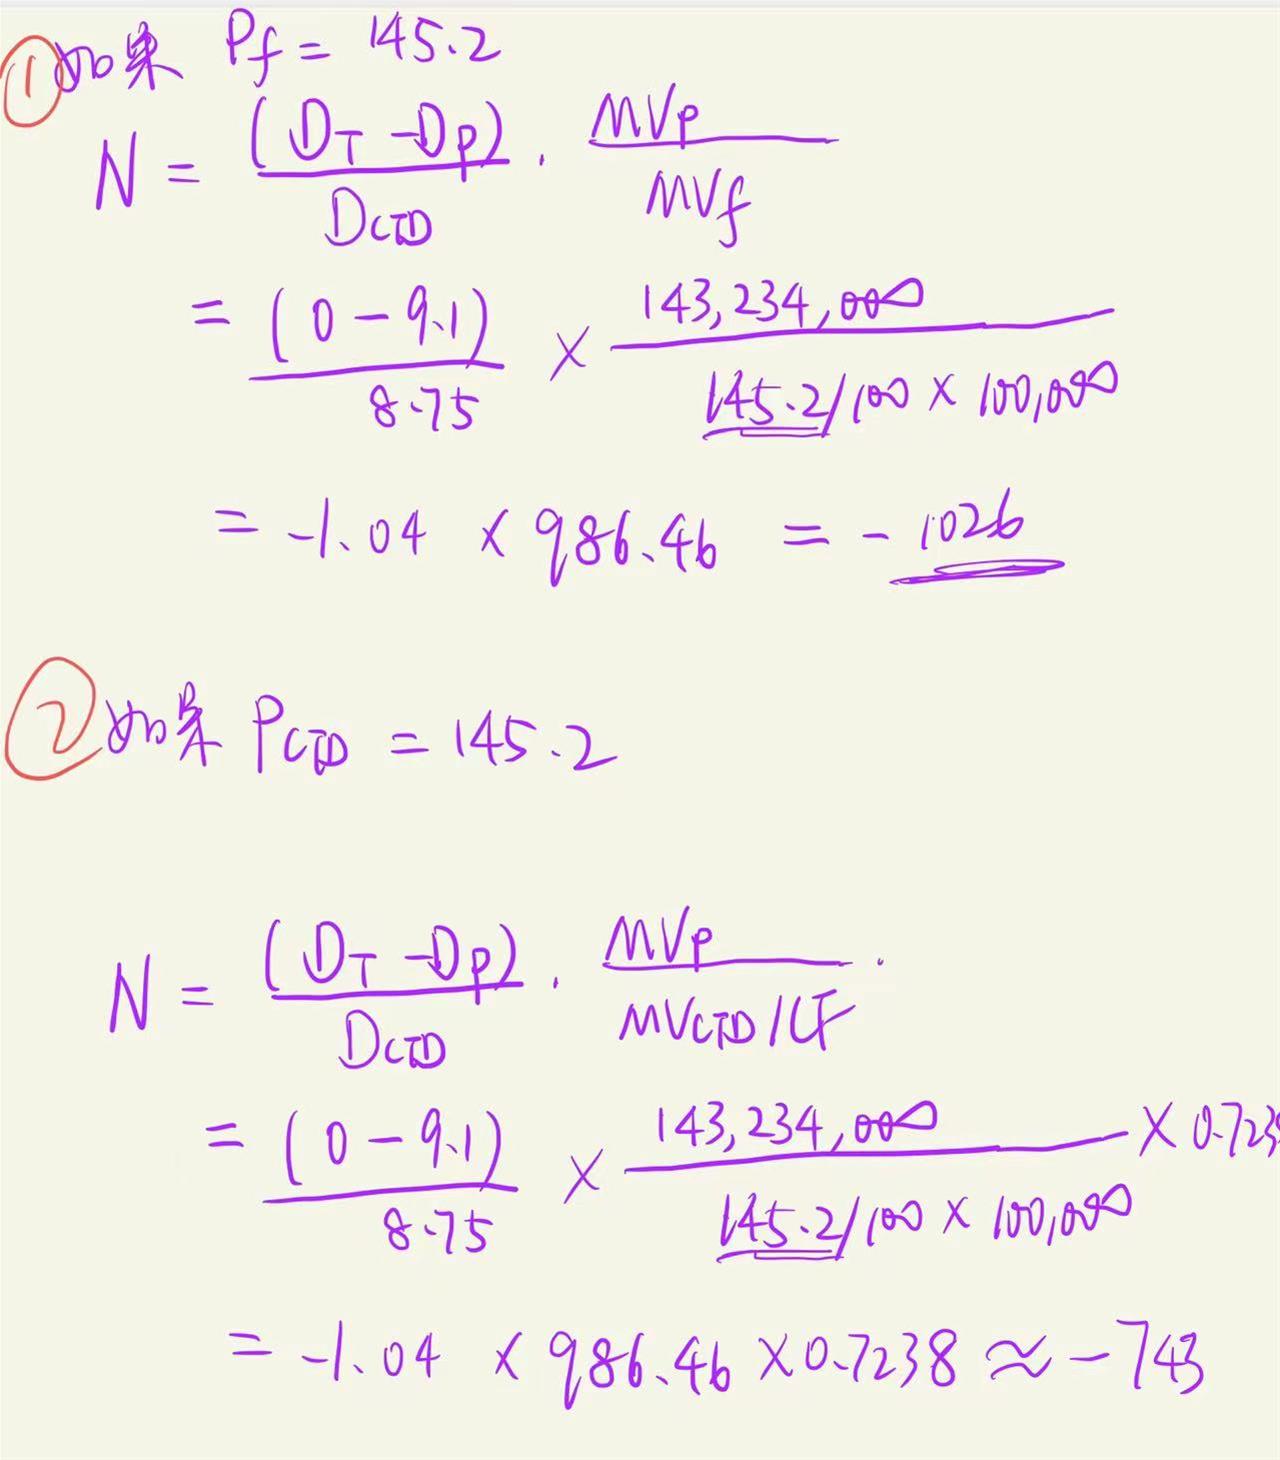 ① 如果 Pf = 145.2
N = (DT - DP) / DCTD · MVP / MVf
= (0 - 9.1) / 8.75 × 143,234,000 / 145.2/100 × 100,000
= -1.04 × 986.46 = -1026
② 如果 PCTD = 145.2
N = (DT - DP) / DCTD · MVP / MVCTD/CF ·
= (0 - 9.1) / 8.75 × 143,234,000 / 145.2/100 × 100,000 × 0.7238
= -1.04 × 986.46 × 0.7238 ≈ -743